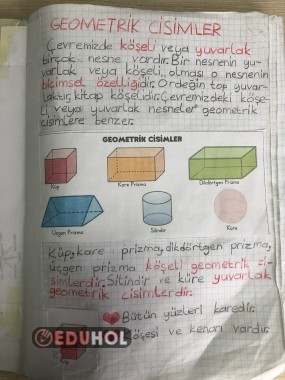 GEOMETRİK CİSİMLER
Çevremizde köşeli veya yuvarlak
birçok nesne vardır. Bir nesnenin yu-
varlak veya köşeli olması o nesnenin
biçimsel özelliğidir. Örneğin top yuvar-
laktır, kitap köşelidir. Çevremizdeki köşe-
li veya yuvarlak nesneler geometrik
cisimlere benzer.
GEOMETRİK CİSİMLER
Küp Kare Prizma Dikdörtgen Prizma
Üçgen Prizma Silindir Küre
Küp, kare prizma, dikdörtgen prizma,
üçgen prizma köşeli geometrik ci-
simlerdir. Silindir ve küre yuvarlak
geometrik cisimlerdir.
Bütün yüzleri karedir.
köşesi ve kenarı vardır.
EDUHOL